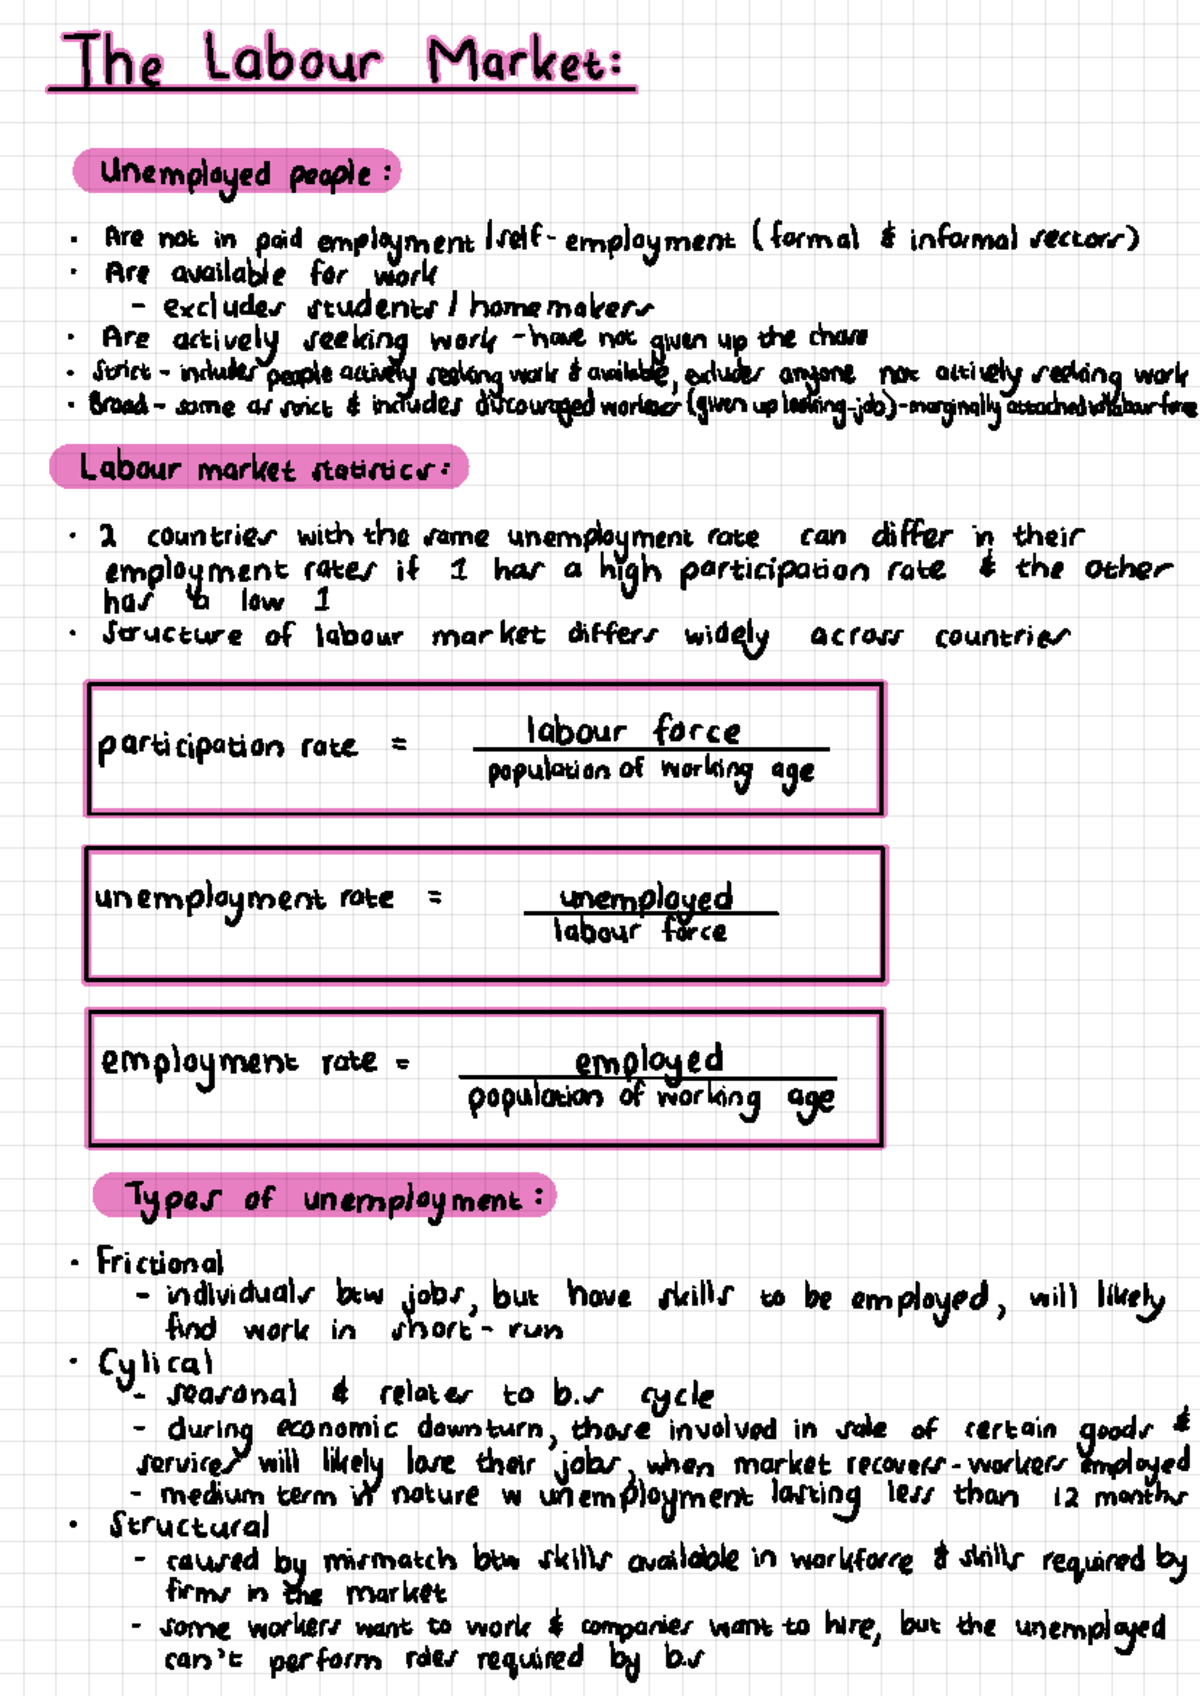 The Labour Market:
Unemployed people:
· Are not in paid employment / self-employment (formal & informal sectors)
· Are available for work
- excludes students / homemakers
· Are actively seeking work - have not given up the chase
· Strict - includes people actively seeking work & available, excludes anyone not actively seeking work
· Broad - same as strict & includes discouraged workers (given up looking-job) - marginally attached to labour force
Labour market statistics:
· 2 countries with the same unemployment rate can differ in their
employment rates if 1 has a high participation rate & the other
has a low 1
· Structure of labour market differs widely across countries
participation rate = labour force
population of working age
unemployment rate = unemployed
labour force
employment rate = employed
population of working age
Types of unemployment:
· Frictional
- individuals btw jobs, but have skills to be employed, will likely
find work in short-run
· Cylical
- seasonal & relates to b.s cycle
- during economic downturn, those involved in sale of certain goods &
services will likely lose their jobs, when market recovers - workers employed
- medium term in nature w unemployment lasting less than 12 months
· Structural
- caused by mismatch btw skills available in workforce & skills required by
firms in the market
- some workers want to work & companies want to hire, but the unemployed
can't perform roles required by b.s